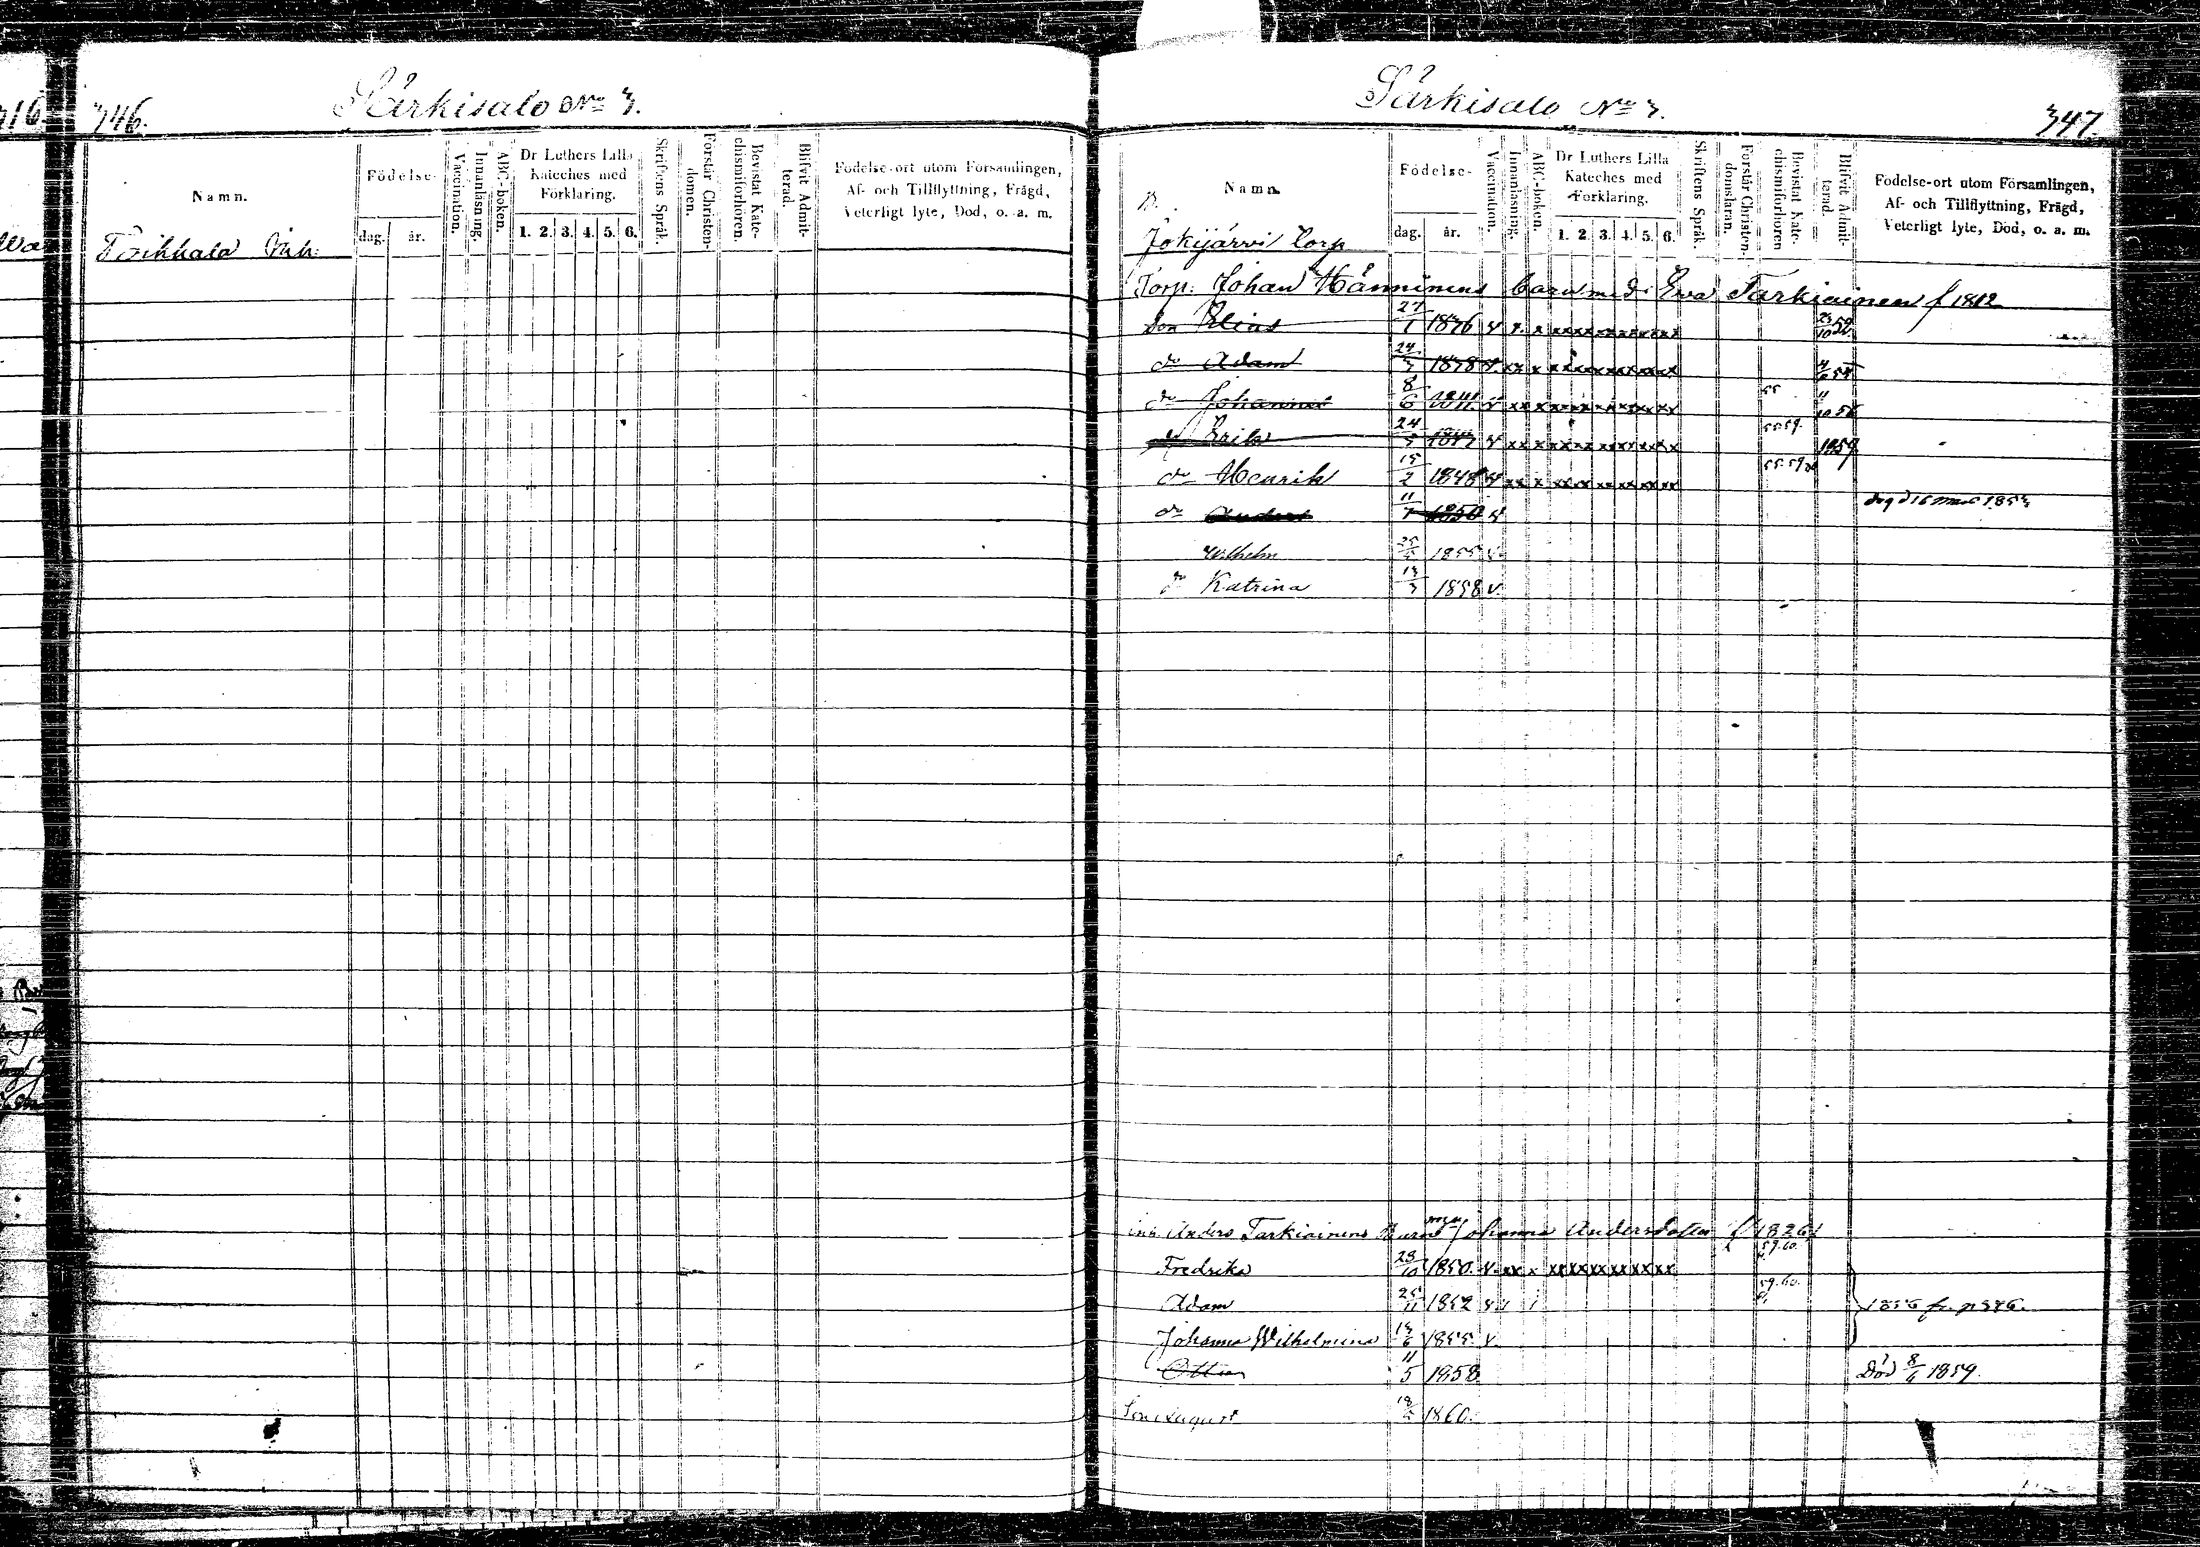 346.
Särkisalo No 3.
Namn.
Födelse-
dag.
år.
Vaccination.
Innanläsning.
ABC-boken.
Dr Luthers Lilla
Kateches med
Förklaring.
1. 2. 3. 4. 5. 6.
Skriftens Språk.
Förstår Christen-
domen.
Bevistat Kate-
chismiförhören.
Blifvit Admit-
terad.
Födelse-ort utom Församlingen,
Af- och Tillflyttning, Frägd,
Veterligt lyte, Död, o. a. m.
Toikkala
Särkisalo No 3.
347.
Namn.
Födelse-
dag.
år.
Vaccination.
Innanläsning.
ABC-boken.
Dr Luthers Lilla
Kateches med
Förklaring.
1. 2. 3. 4. 5. 6.
Skriftens Språk.
Förstår Christen-
domsläran.
Bevistat Kate-
chismiförhören
Blifvit Admit-
terad.
Födelse-ort utom Församlingen,
Af- och Tillflyttning, Frägd,
Veterligt lyte, Död, o. a. m.
Jokijärvi Torp
Torp: Johan Hänninens barn med Eva Tarkiainen f 1812
Son Elias 27/1 1836 v x x xxxxxxxxxxxx 23/10 52
do Adam 24/3 1838 v xx x xxxxxxxxxxxx
do Johannes 8/6 1841 v xx xxxxxxxxxxxx 55
do Erik 24/5 v xx xxxxxxxxxxxx 55 59. 1859
do Henrik 15/2 1848 v xx x xxxxxxxxxxxx 55 59
do Anders 11/1 1850 v 1853
Wilhelm 1855 v
do Katrina 13/3 1858 v
inh Anders Tarkiainens Barn med Johanna Andersdotter f 1826
Fredrika 28/10 1850. v xx x xxxxxxxxxxxx 59.60.
Adam 25/11 1852 v 59.60. 1856 fr. p 546.
Johanna Wilhelmina 13/6 1855 v
Otto 11/5 1858 Död 8/6 1859.
Son August 1860.